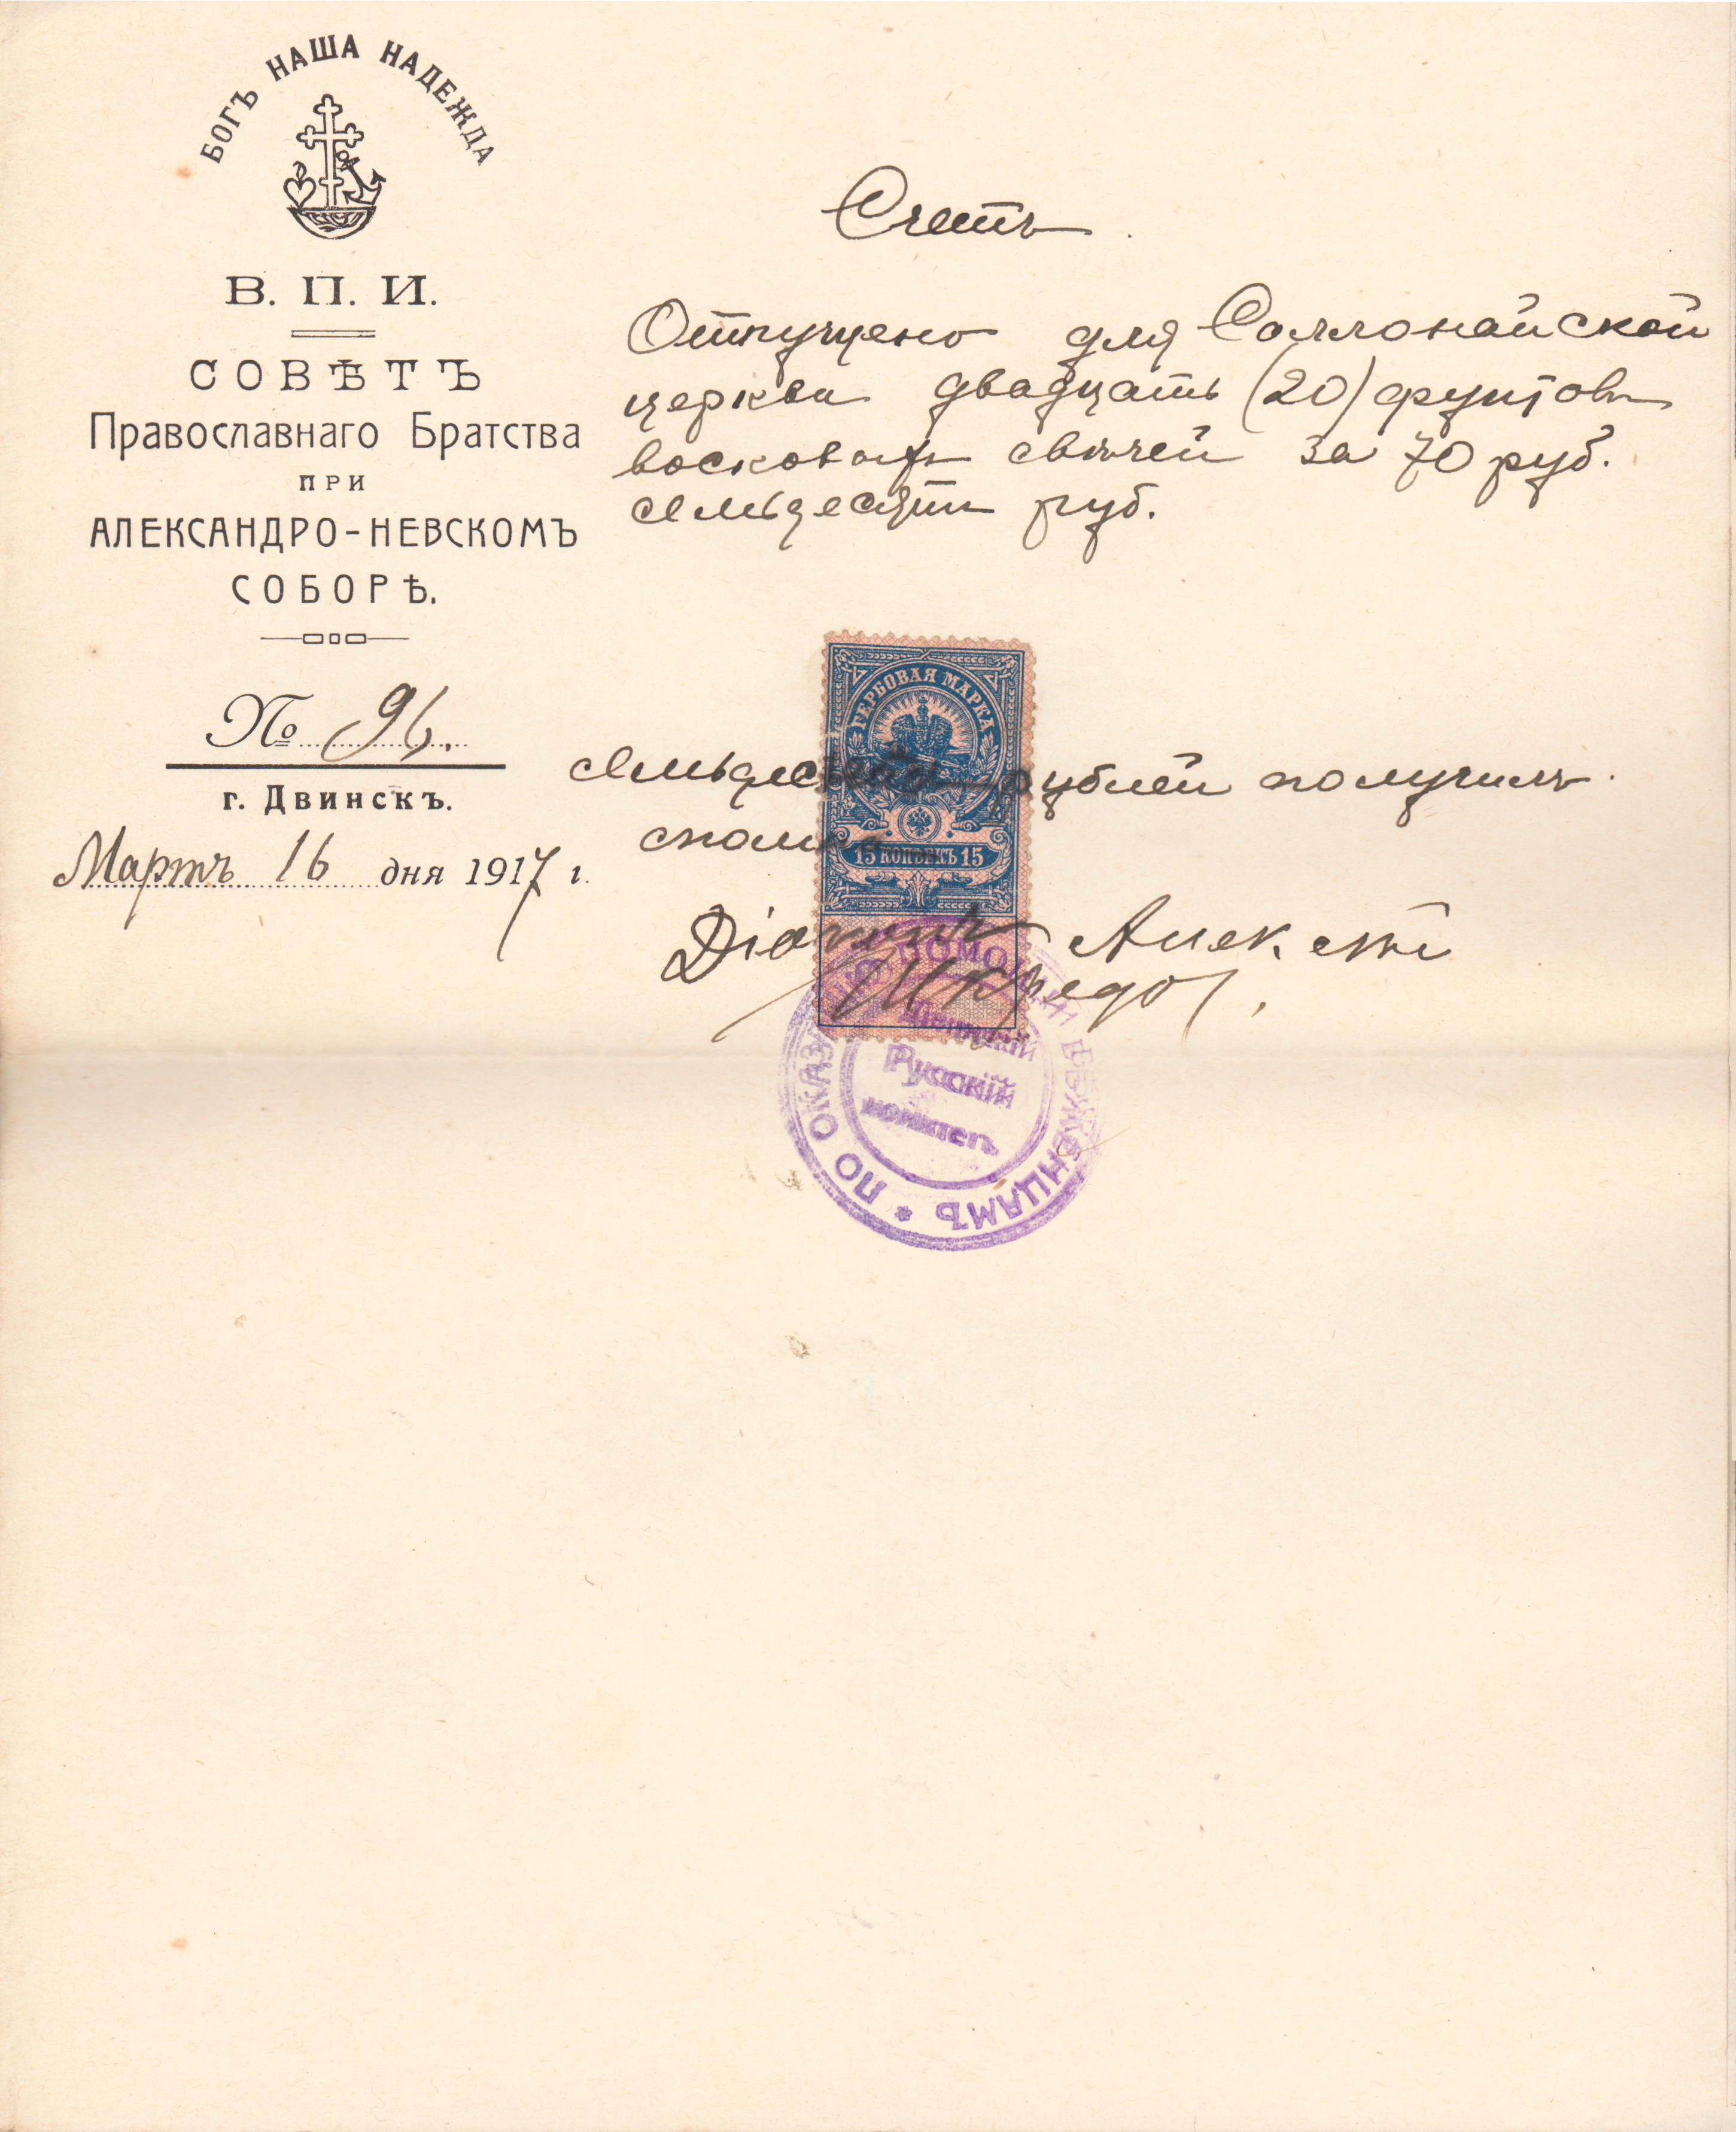 БОГЪ НАША НАДЕЖДА
В. П. И.
СОВѢТЪ
Православнаго Братства
ПРИ
АЛЕКСАНДРО-НЕВСКОМЪ
СОБОРѢ.
№ 96.
г. Двинскъ.
Мартъ 16 дня 1917 г.
Счетъ.
Отпущено для
церкви двадцать (20) фунтовъ
восковыхъ свѣчей за 70 руб.
семьдесятъ руб.
ГЕРБОВАЯ МАРКА
15 КОПѢЕКЪ 15
семьдесятъ рублей получилъ
сполна
Діаконъ Алексѣй
ПО ОКАЗАНІЮ ПОМОЩИ БѢЖЕНЦАМЪ *
Двинскій
Русскій
комитетъ